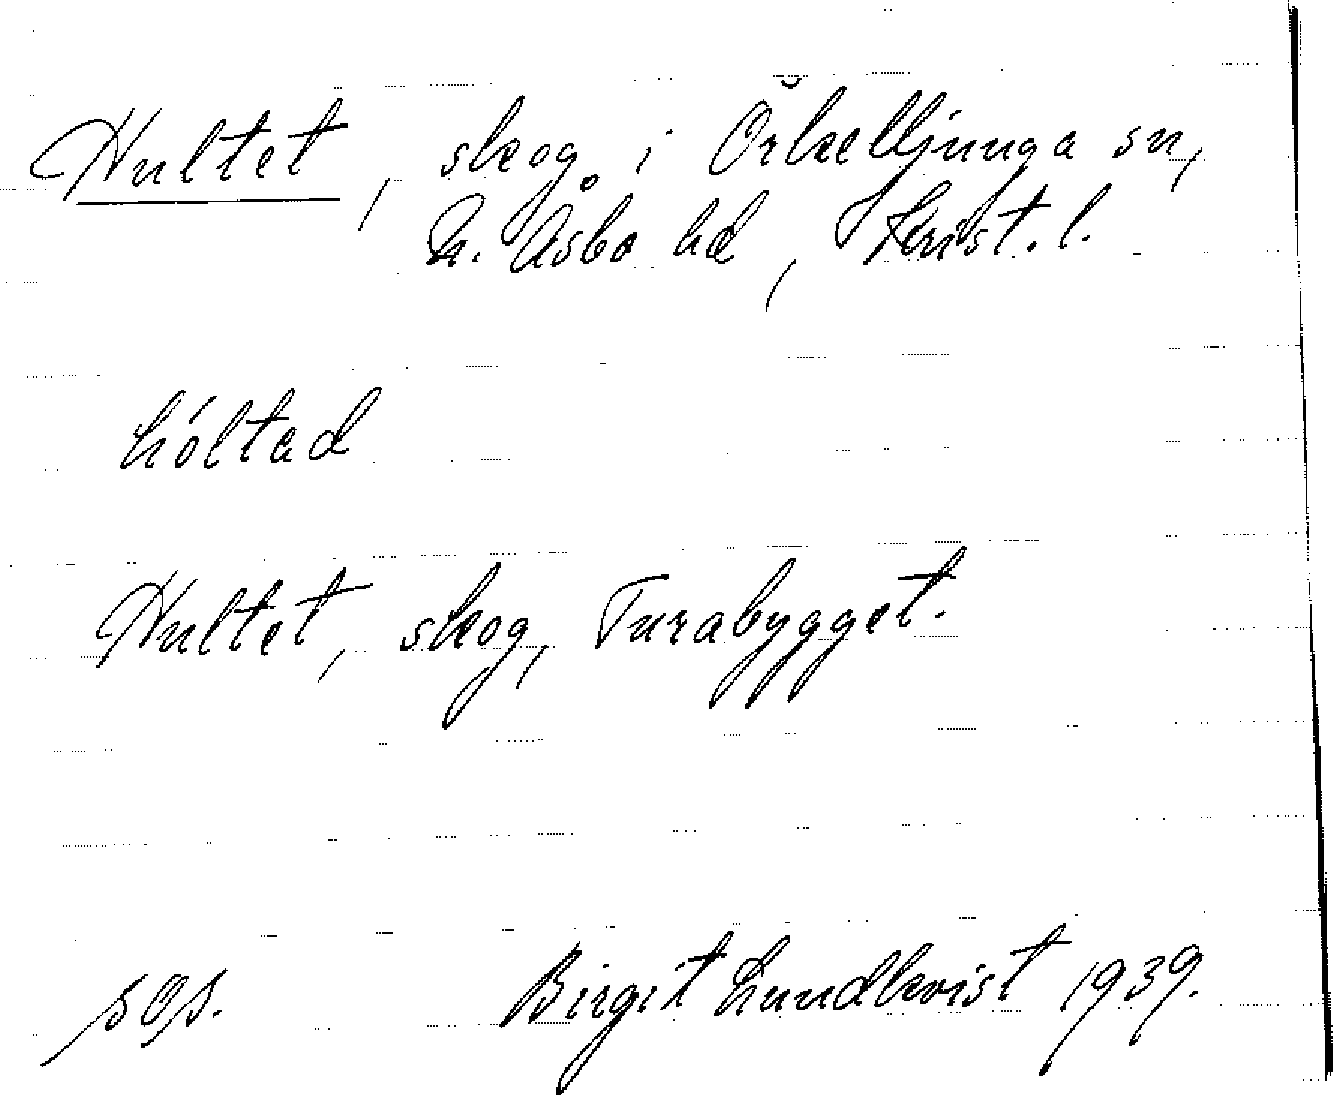 Hultet, skog i Örkelljunga sn,
N. Åsbo hd, Krist. l.
hóltad
Hultet, skog, Turabygget.
Birgit Lundkvist 1939.